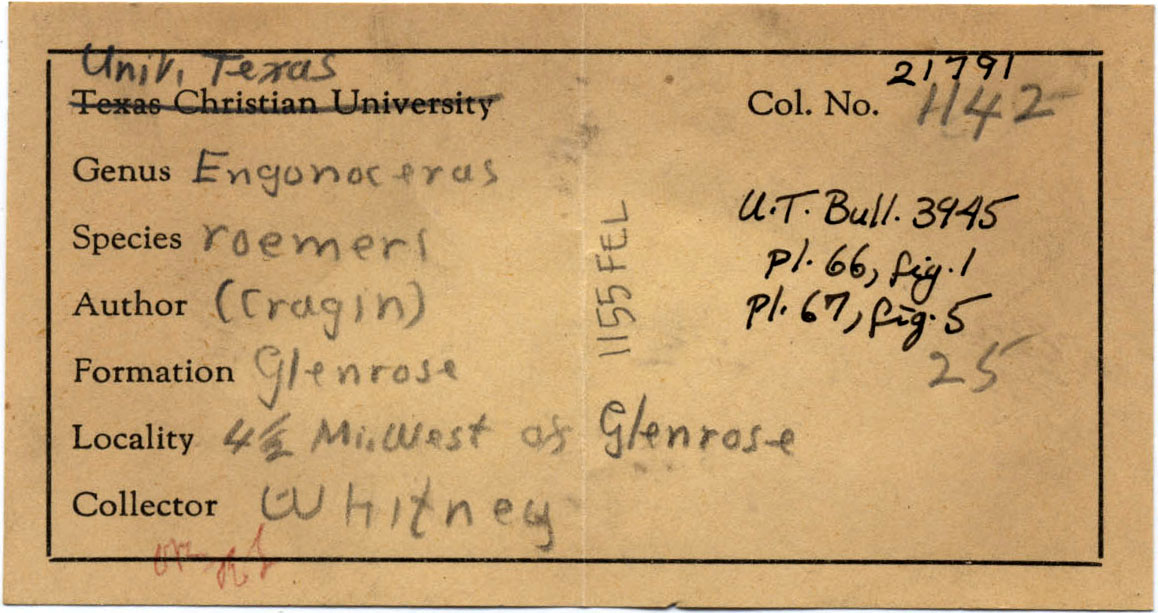 Univ. Texas
Texas Christian University
21791
Col. No. 1142
Genus Engonoceras
Species roemeri
Author (Cragin)
Formation Glenrose
Locality 4½ Mi. West of Glenrose
Collector Whitney
U.T. Bull. 3945
pl. 66, fig. 1
pl. 67, fig. 5
25
1155 FEL